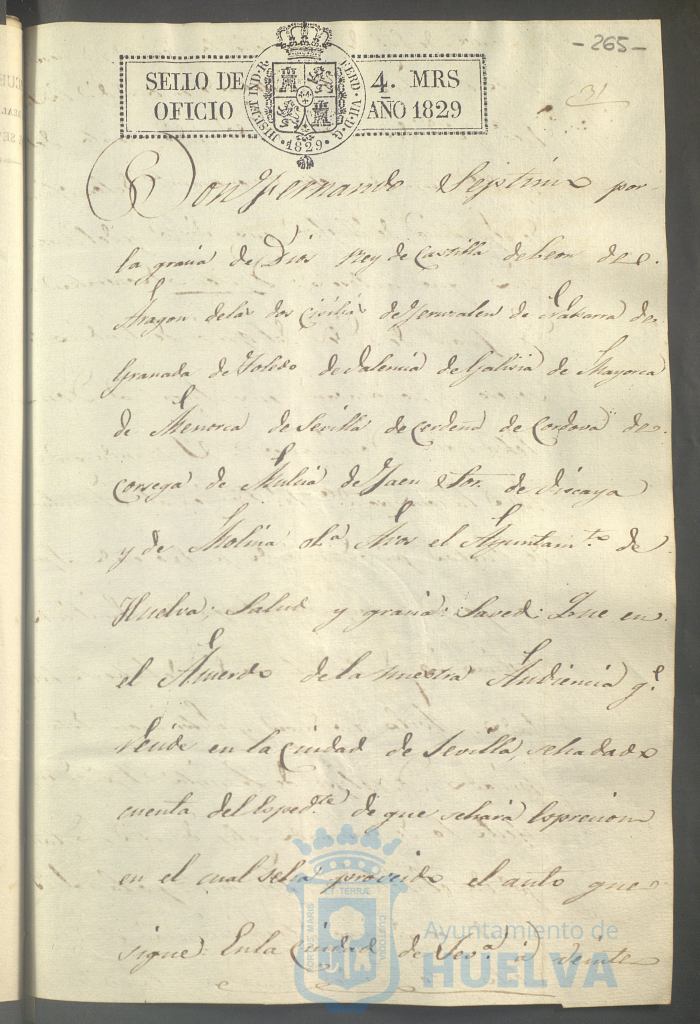 - 265 -
31
SELLO DE 4. MRS
OFICIO AÑO 1829
HISP. ET IND. R. FERD. VII. D. G. 1829.
Don Fernando Septimo por
la gracia de Dios Rey de Castilla de Leon de
Aragon delas dos Cicilias de Jeruzalen de Nabarra de
Granada de Toledo de Valencia de Galicia de Mayorca
de Menorca de Sevilla de Cerdeña de Cordova de
Corsega de Mulcia de Jaen Sor. de Viscaya
y de Molina &a A vos el Ayuntamto de
Huelva; Salud y gracia: Saved: Que en
el Acuerdo de la nuestra Audiencia qe
recide en la Ciudad de Sevilla, sehadado
cuenta del Espedte de que sehará Esprecion
en el cual seha proveido el auto que
sigue. En la Ciudad de Seva á veinte
PORTUS MARIS ET TERRÆ CUSTODIA
Ayuntamiento de
HUELVA